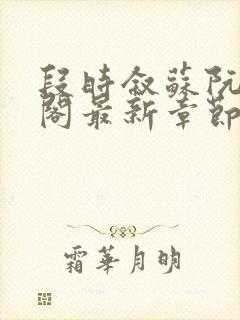 段時敘蘇阮
閣最新章節
霜華月明